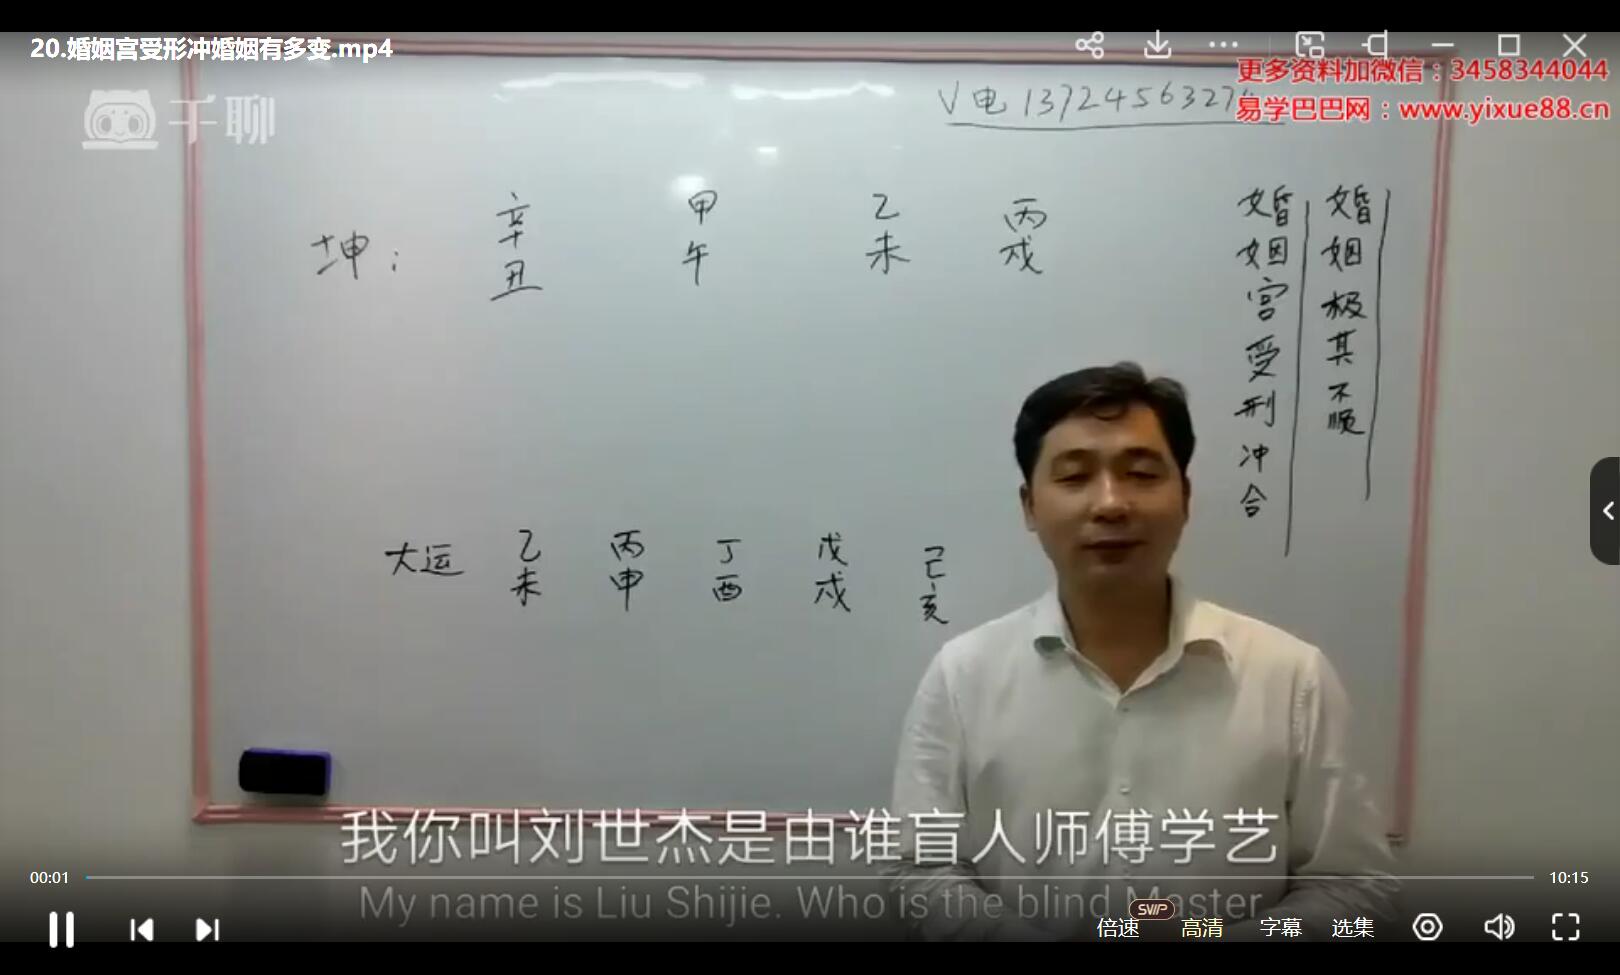 20.婚姻宫受形冲婚姻有多变.mp4
更多资料加微信：3458344044
易学巴巴网：www.yixue88.cn
千聊
V电 1372456327
坤：
辛丑
甲午
乙未
丙戌
婚姻极其不顺
婚姻宫受刑冲合
大运
乙未
丙申
丁酉
戊戌
己亥
我你叫刘世杰是由谁盲人师傅学艺
My name is Liu Shijie. Who is the blind Master
00:01
10:15
倍速
SVIP
高清
字幕
选集